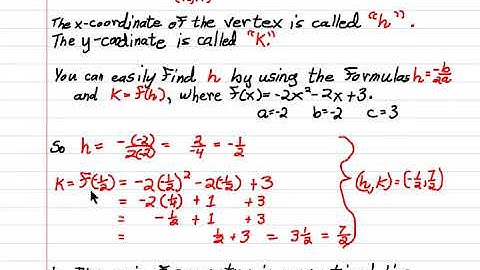 The x-coordinate of the vertex is called "h".
The y-coodinate is called "K."
You can easily find h by using the formulas h = -b/2a
and K = F(h), where F(x) = -2x² - 2x + 3.
a=-2 b=-2 c=3
So h = -(-2)/2(-2) = 2/-4 = -1/2
K = F(-1/2) = -2(-1/2)² - 2(-1/2) + 3
= -2(1/4) + 1 + 3
= -1/2 + 1 + 3
= 1/2 + 3 = 3 1/2 = 7/2
(h,K) = (-1/2, 7/2)